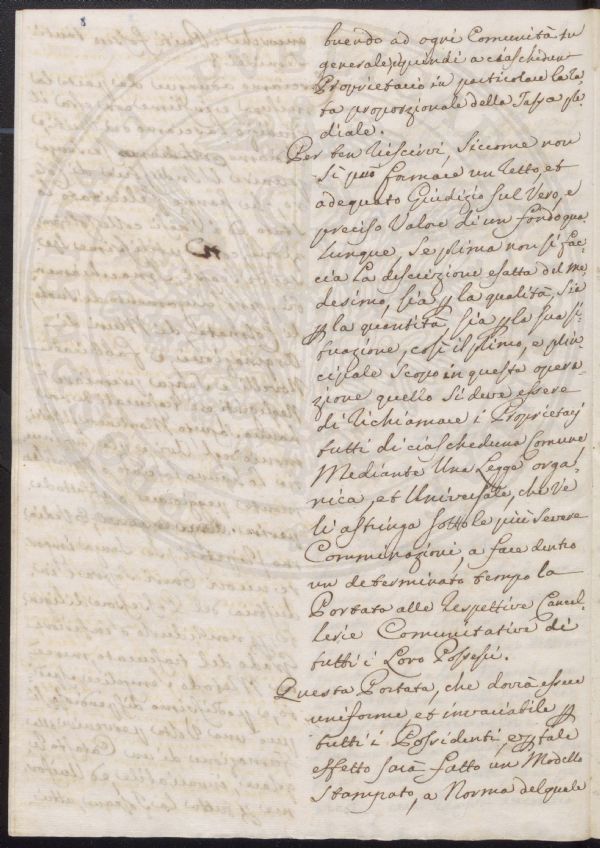 buendo ad ogni Comunità in
generale, e quindi a ciaschedun
Proprietario in particolare la ra-
ta proporzionale della Tassa pre-
diale.
Per ben riescirvi, siccome non
si può formare un retto, et
adequato Giudizio sul Vero, e
preciso Valore di un fondo qua-
lunque, se prima non si fac-
cia la descrizione esatta del me-
desimo, sia p la qualità, sia
p la quantità, sia p la sua si-
tuazione, così il primo, e prin-
cipale scopo in questa opera-
zione quello si deve essere
di richiamare i Proprietarj
tutti di ciascheduna Comune
Mediante Una Legge orga-
nica, et Universale, che ve
li astringa sotto le più severe
Comminazioni, a fare dentro
un determinato tempo la
Portata alle respettive Cancel-
lerie Comunitative di
tutti i Loro Possessi.
Questa Portata, che dovrà essere
uniforme, et invariabile p
tutti i Possidenti, e p tale
effetto sarà fatto un Modello
stampato, a Norma del quale